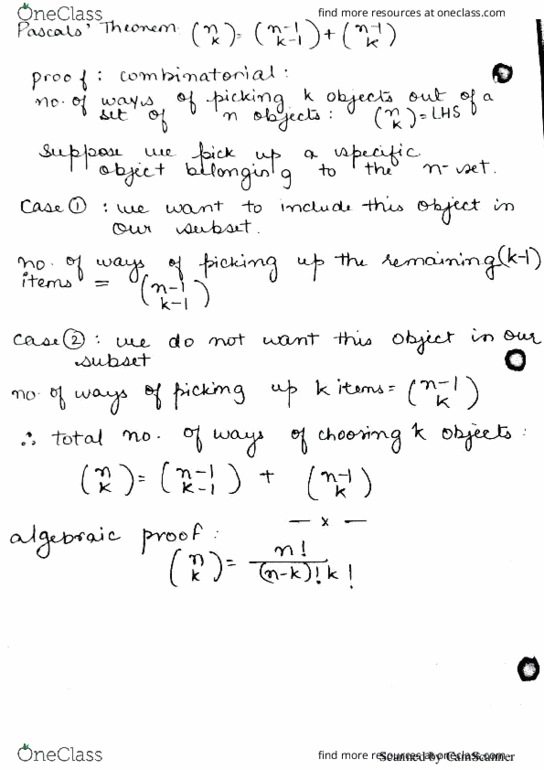 OneClass
find more resources at oneclass.com
Pascals' Theorem (n k) = (n-1 k-1) + (n-1 k)
proof : combinatorial :
no. of ways of picking k objects out of a
set of n objects : (n k) = LHS
suppose we pick up a specific
object belonging to the n-set.
Case ① : we want to include this object in
our subset.
no. of ways of picking up the remaining (k-1)
items = (n-1 k-1)
Case ② : we do not want this object in our
subset
no. of ways of picking up k items = (n-1 k)
∴ total no. of ways of choosing k objects :
(n k) = (n-1 k-1) + (n-1 k)
— x —
algebraic proof :
(n k) = n! / (n-k)! k!
OneClass
find more resources at oneclass.com
Scanned by CamScanner